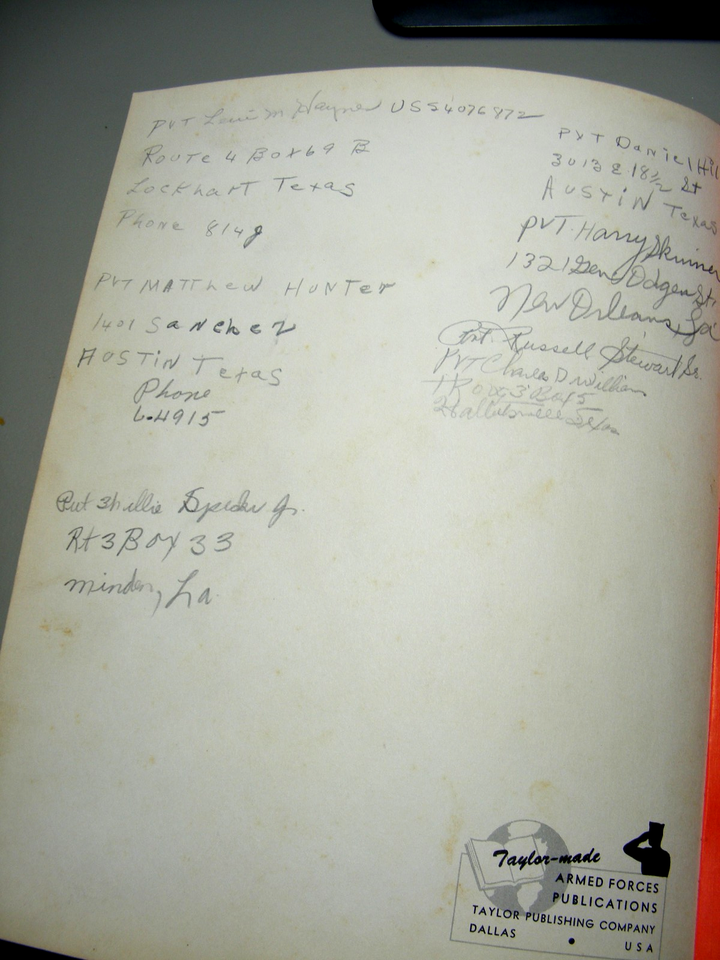 PVT M Haynes US54076972
Route 4 Box 69 B
Lockhart Texas
Phone 814
PVT MATThew HuNTer
1401 Sanchez
AUSTiN Texas
Phone
6-4915
Pvt Jr.
Rt 3 Box 33
minden, La.
PVT Daniel Hil
3013 E 18½ St
AUSTiN Texas
PVT. Harry Skinner
1321 St.
New Orleans, La
Pvt. Russell Stewart Sr.
PVT Charles D William
3 Box 5
Hallettsville Texas
Taylor-made
ARMED FORCES
PUBLICATIONS
TAYLOR PUBLISHING COMPANY
DALLAS • USA